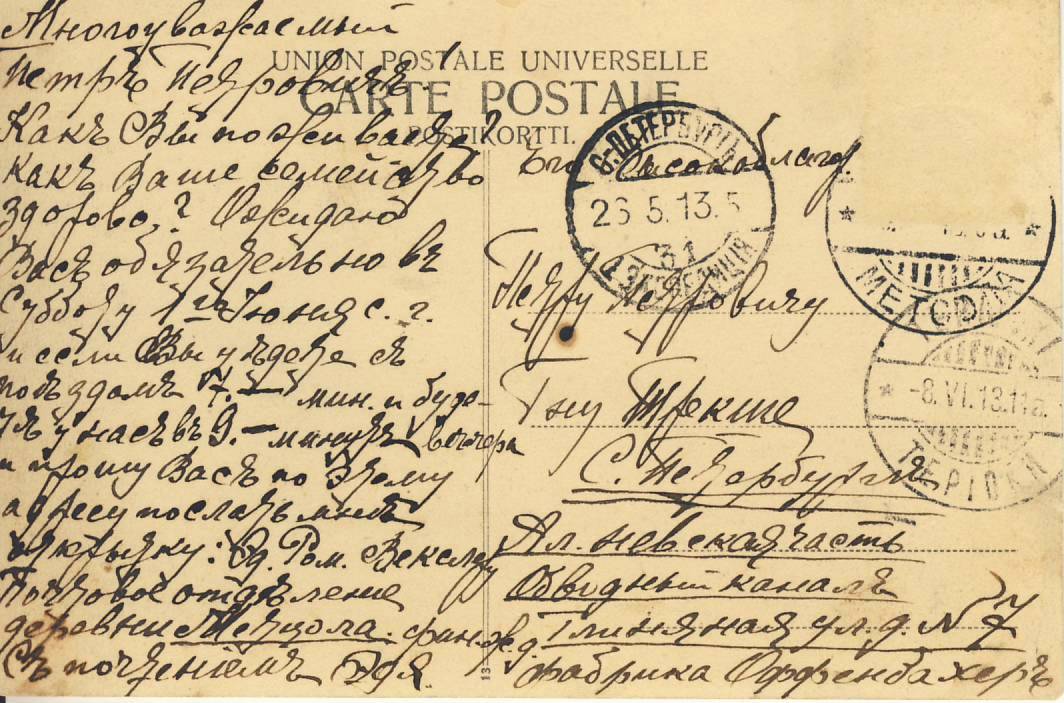 Многоуважаемый
Петръ Петровичъ!
UNION POSTALE UNIVERSELLE
CARTE POSTALE
POSTIKORTTI.
Какъ Вы поживаете?
какъ Ваше семейство
здорово? Ожидаю
Васъ обязательно въ
Субботу 1го Июня с. г.
и если Вы уѣдете съ
поѣздомъ 7.— мин. и буде-
те у насъ въ 9.— минутъ вечера
и прошу Васъ по этому
адресу послать мнѣ
открытку: Эд. Ром. Векслеру
Почтовое отдѣление
деревни Метцола. фин. ж. д.
Съ почтениемъ Эдя.
Его Высокоблагор.
Петру Петровичу
Гну Трекше
С. Петербургъ
Ал. невская часть
Обводный каналъ
Глиняная ул. д. № 7
фабрика Оффенбахеръ
С-ПЕТЕРБУРГЪ
26 5. 13. 5
31
ЭКСПЕДИЦІЯ
МЕТСОЛА
-8.VI.13.11a.
ТЕРІОКИ
13